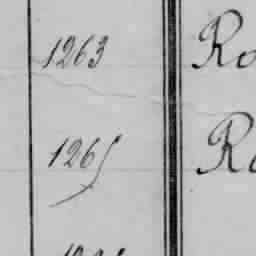 1263 Ro
1265 Ro